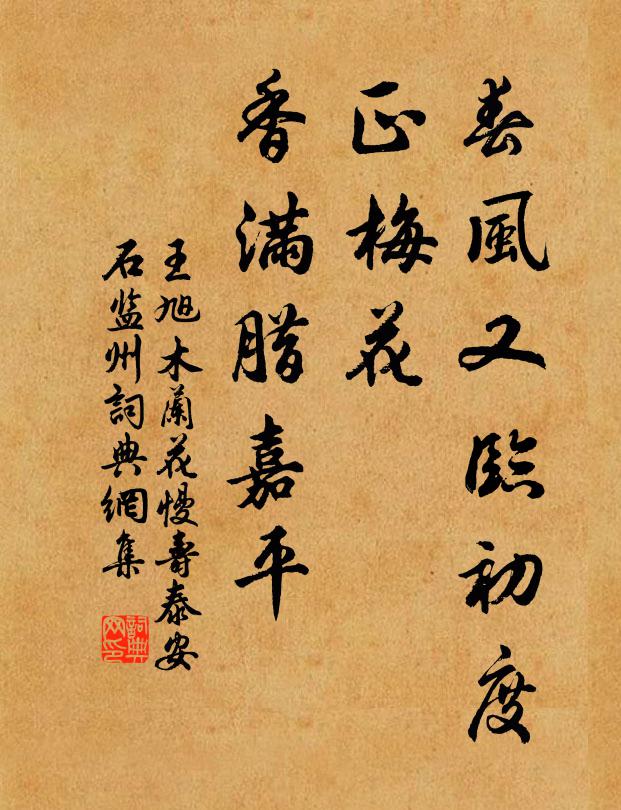 春風又臨初度
正梅花
香滿腊嘉平
王旭木蘭花慢壽泰安
石监州詞典網集
詞典
网印